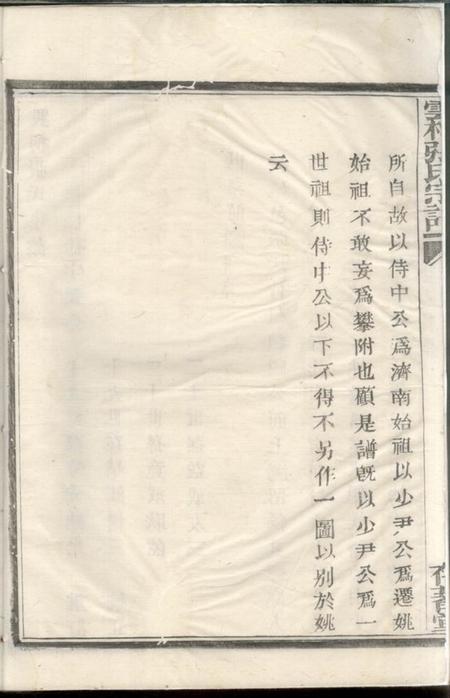 張氏宗譜
所自故以侍中公為濟南始祖以少尹公為遷姚
始祖不敢妄為攀附也顧是譜旣以少尹公為一
世祖則侍中公以下不得不另作一圖以別於姚
云